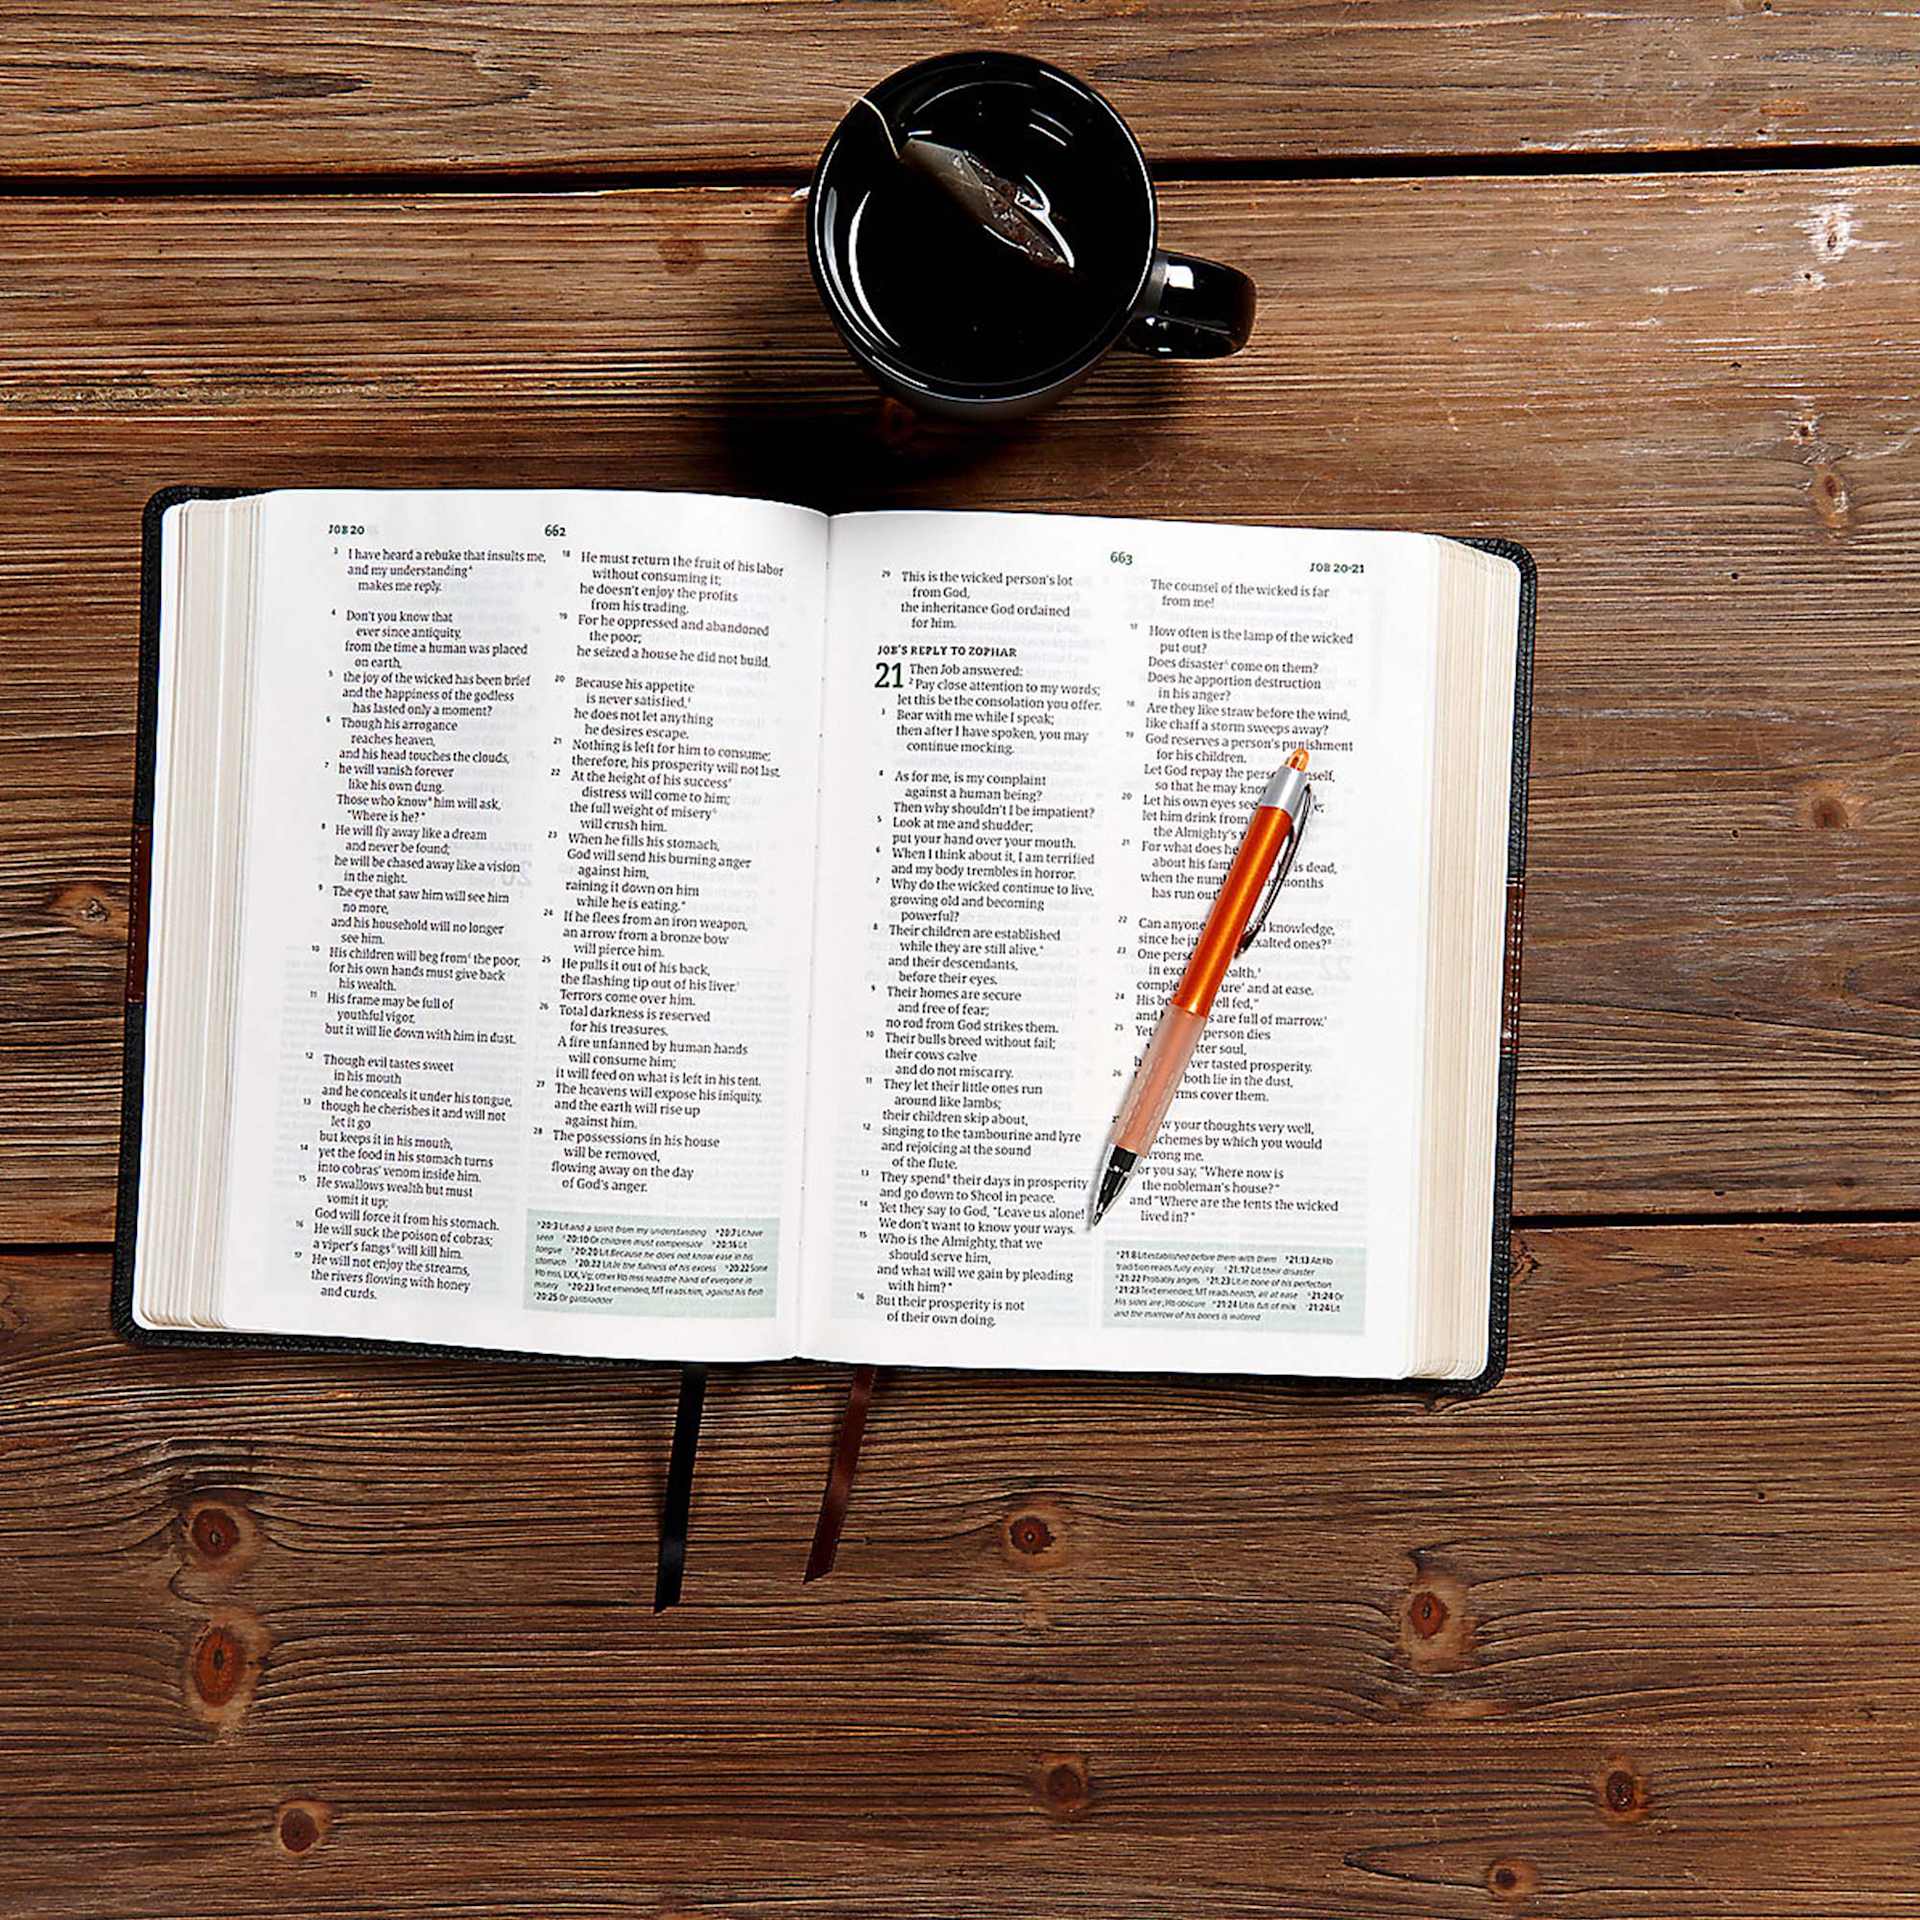 JOB 20
662
3 I have heard a rebuke that insults me,
and my understanding
makes me reply.
4 Don't you know that
ever since antiquity,
from the time a human was placed
on earth,
5 the joy of the wicked has been brief
and the happiness of the godless
has lasted only a moment?
6 Though his arrogance
reaches heaven,
and his head touches the clouds,
7 he will vanish forever
like his own dung.
Those who know him will ask,
"Where is he?"
8 He will fly away like a dream
and never be found;
he will be chased away like a vision
in the night.
9 The eye that saw him will see him
no more,
and his household will no longer
see him.
10 His children will beg from the poor,
for his own hands must give back
his wealth.
11 His frame may be full of
youthful vigor,
but it will lie down with him in dust.
12 Though evil tastes sweet
in his mouth
and he conceals it under his tongue,
13 though he cherishes it and will not
let it go
but keeps it in his mouth,
14 yet the food in his stomach turns
into cobras' venom inside him.
15 He swallows wealth but must
vomit it up;
God will force it from his stomach.
16 He will suck the poison of cobras;
a viper's fangs will kill him.
17 He will not enjoy the streams,
the rivers flowing with honey
and curds.
18 He must return the fruit of his labor
without consuming it;
he doesn't enjoy the profits
from his trading.
19 For he oppressed and abandoned
the poor;
he seized a house he did not build.
20 Because his appetite
is never satisfied,
he does not let anything
he desires escape.
21 Nothing is left for him to consume;
therefore, his prosperity will not last.
22 At the height of his success
distress will come to him;
the full weight of misery
will crush him.
23 When he fills his stomach,
God will send his burning anger
against him,
raining it down on him
while he is eating.
24 If he flees from an iron weapon,
an arrow from a bronze bow
will pierce him.
25 He pulls it out of his back,
the flashing tip out of his liver.
Terrors come over him.
26 Total darkness is reserved
for his treasures.
A fire unfanned by human hands
will consume him;
it will feed on what is left in his tent.
27 The heavens will expose his iniquity,
and the earth will rise up
against him.
28 The possessions in his house
will be removed,
flowing away on the day
of God's anger.
20:3 Lit and a spirit from my understanding 20:7 Lit have
seen 20:10 Or children must compensate 20:16 Lit
tongue 20:20 Lit Because he does not know ease in his
stomach 20:22 Lit In the fullness of his excess 20:22 Some
Hb mss, LXX, Vg; other Hb mss read the hand of everyone in
misery 20:23 Text emended; MT reads him, against his flesh
20:25 Or gallbladder
663
JOB 20-21
29 This is the wicked person's lot
from God,
the inheritance God ordained
for him.
JOB'S REPLY TO ZOPHAR
21 Then Job answered:
2 Pay close attention to my words;
let this be the consolation you offer.
3 Bear with me while I speak;
then after I have spoken, you may
continue mocking.
4 As for me, is my complaint
against a human being?
Then why shouldn't I be impatient?
5 Look at me and shudder;
put your hand over your mouth.
6 When I think about it, I am terrified
and my body trembles in horror.
7 Why do the wicked continue to live,
growing old and becoming
powerful?
8 Their children are established
while they are still alive,
and their descendants,
before their eyes.
9 Their homes are secure
and free of fear;
no rod from God strikes them.
10 Their bulls breed without fail;
their cows calve
and do not miscarry.
11 They let their little ones run
around like lambs;
their children skip about,
12 singing to the tambourine and lyre
and rejoicing at the sound
of the flute.
13 They spend their days in prosperity
and go down to Sheol in peace.
14 Yet they say to God, "Leave us alone!
We don't want to know your ways.
15 Who is the Almighty, that we
should serve him,
and what will we gain by pleading
with him?"
16 But their prosperity is not
of their own doing.
The counsel of the wicked is far
from me!
17 How often is the lamp of the wicked
put out?
Does disaster come on them?
Does he apportion destruction
in his anger?
18 Are they like straw before the wind,
like chaff a storm sweeps away?
19 God reserves a person's punishment
for his children.
Let God repay the
so that he may
20 Let his own eyes
let him drink from
the Almighty's
21 For what does he
about his is dead,
when the months
has run out
22 Can anyone knowledge,
since he exalted ones?
23 One
in
and at ease.
24 His fed,
and are full of marrow.
25 Yet person dies
soul,
tasted prosperity.
26 both lie in the dust,
cover them.
your thoughts very well,
schemes by which you would
wrong me.
you say, "Where now is
the nobleman's house?"
and "Where are the tents the wicked
lived in?"
21:8 Lit established before them with them 21:13 Alt Hb
tradition reads fully enjoy 21:17 Lit their disaster
21:22 Probably angels 21:23 Lit in bone of his perfection
21:23 Text emended; MT reads health, all at ease 21:24 Or
His sides are; Hb obscure 21:24 Lit is full of milk 21:24 Lit
and the marrow of his bones is watered